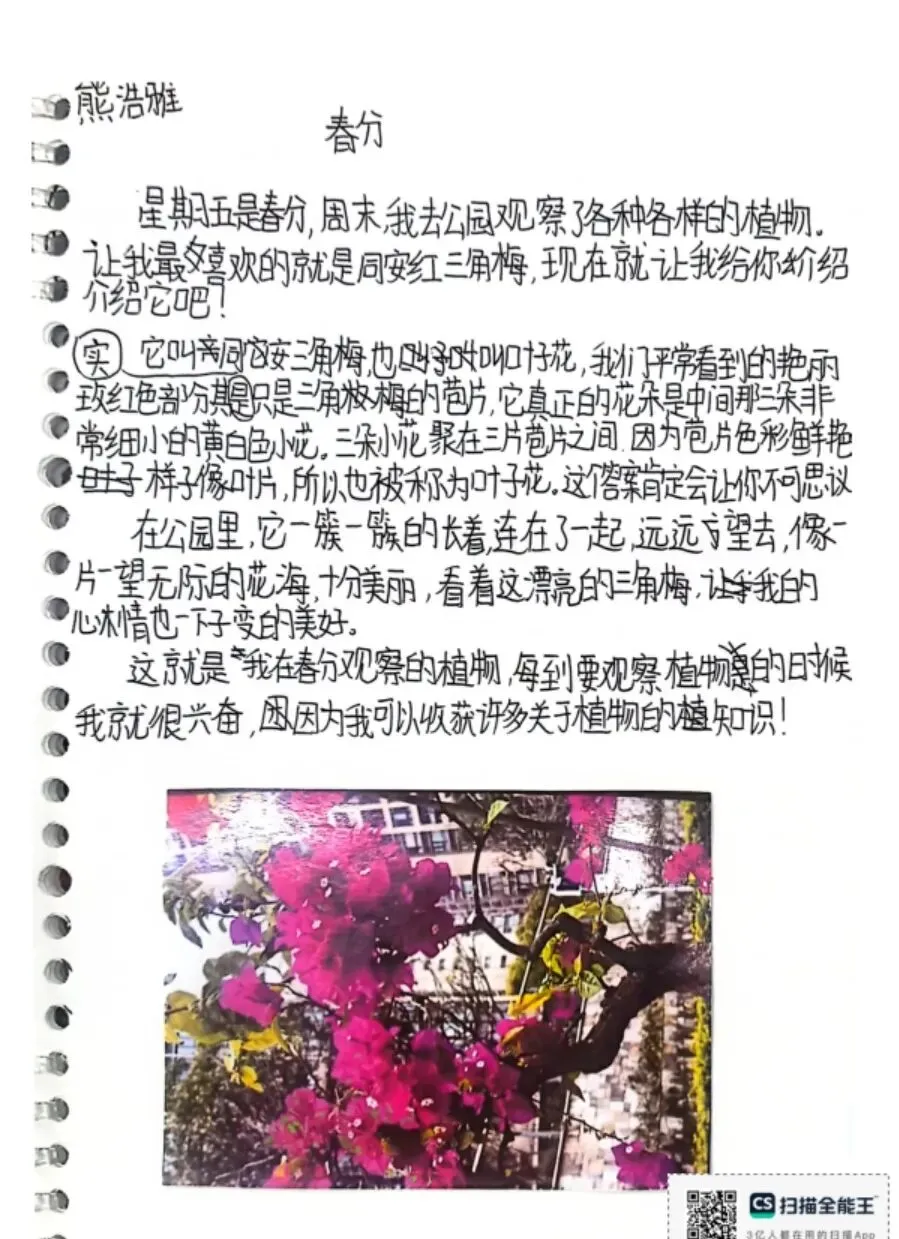 熊浩雅
春分
星期五是春分,周末,我去公园观察了各种各样的植物。
让我最喜欢的就是同安红三角梅,现在就让我给你介绍
介绍它吧!
实 它叫同安三角梅,也叫叶子花,我们平常看到的艳丽
玫红色部分其只是三角梅的苞片,它真正的花朵是中间那三朵非
常细小的黄白色小花。三朵小花聚在三片苞片之间.因为苞片色彩鲜艳
样子像叶片,所以也被称为叶子花。这个答案肯定会让你不可思议
在公园里,它一簇一簇的长着,连在了一起,远远望去,像一
片一望无际的花海,十分美丽,看着这漂亮的三角梅.我的
心情也一下子变的美好。
这就是我在春分观察的植物,每到要观察植物的时候
我就很兴奋,因为我可以收获许多关于植物的知识!
CS 扫描全能王
3亿人都在用的扫描App